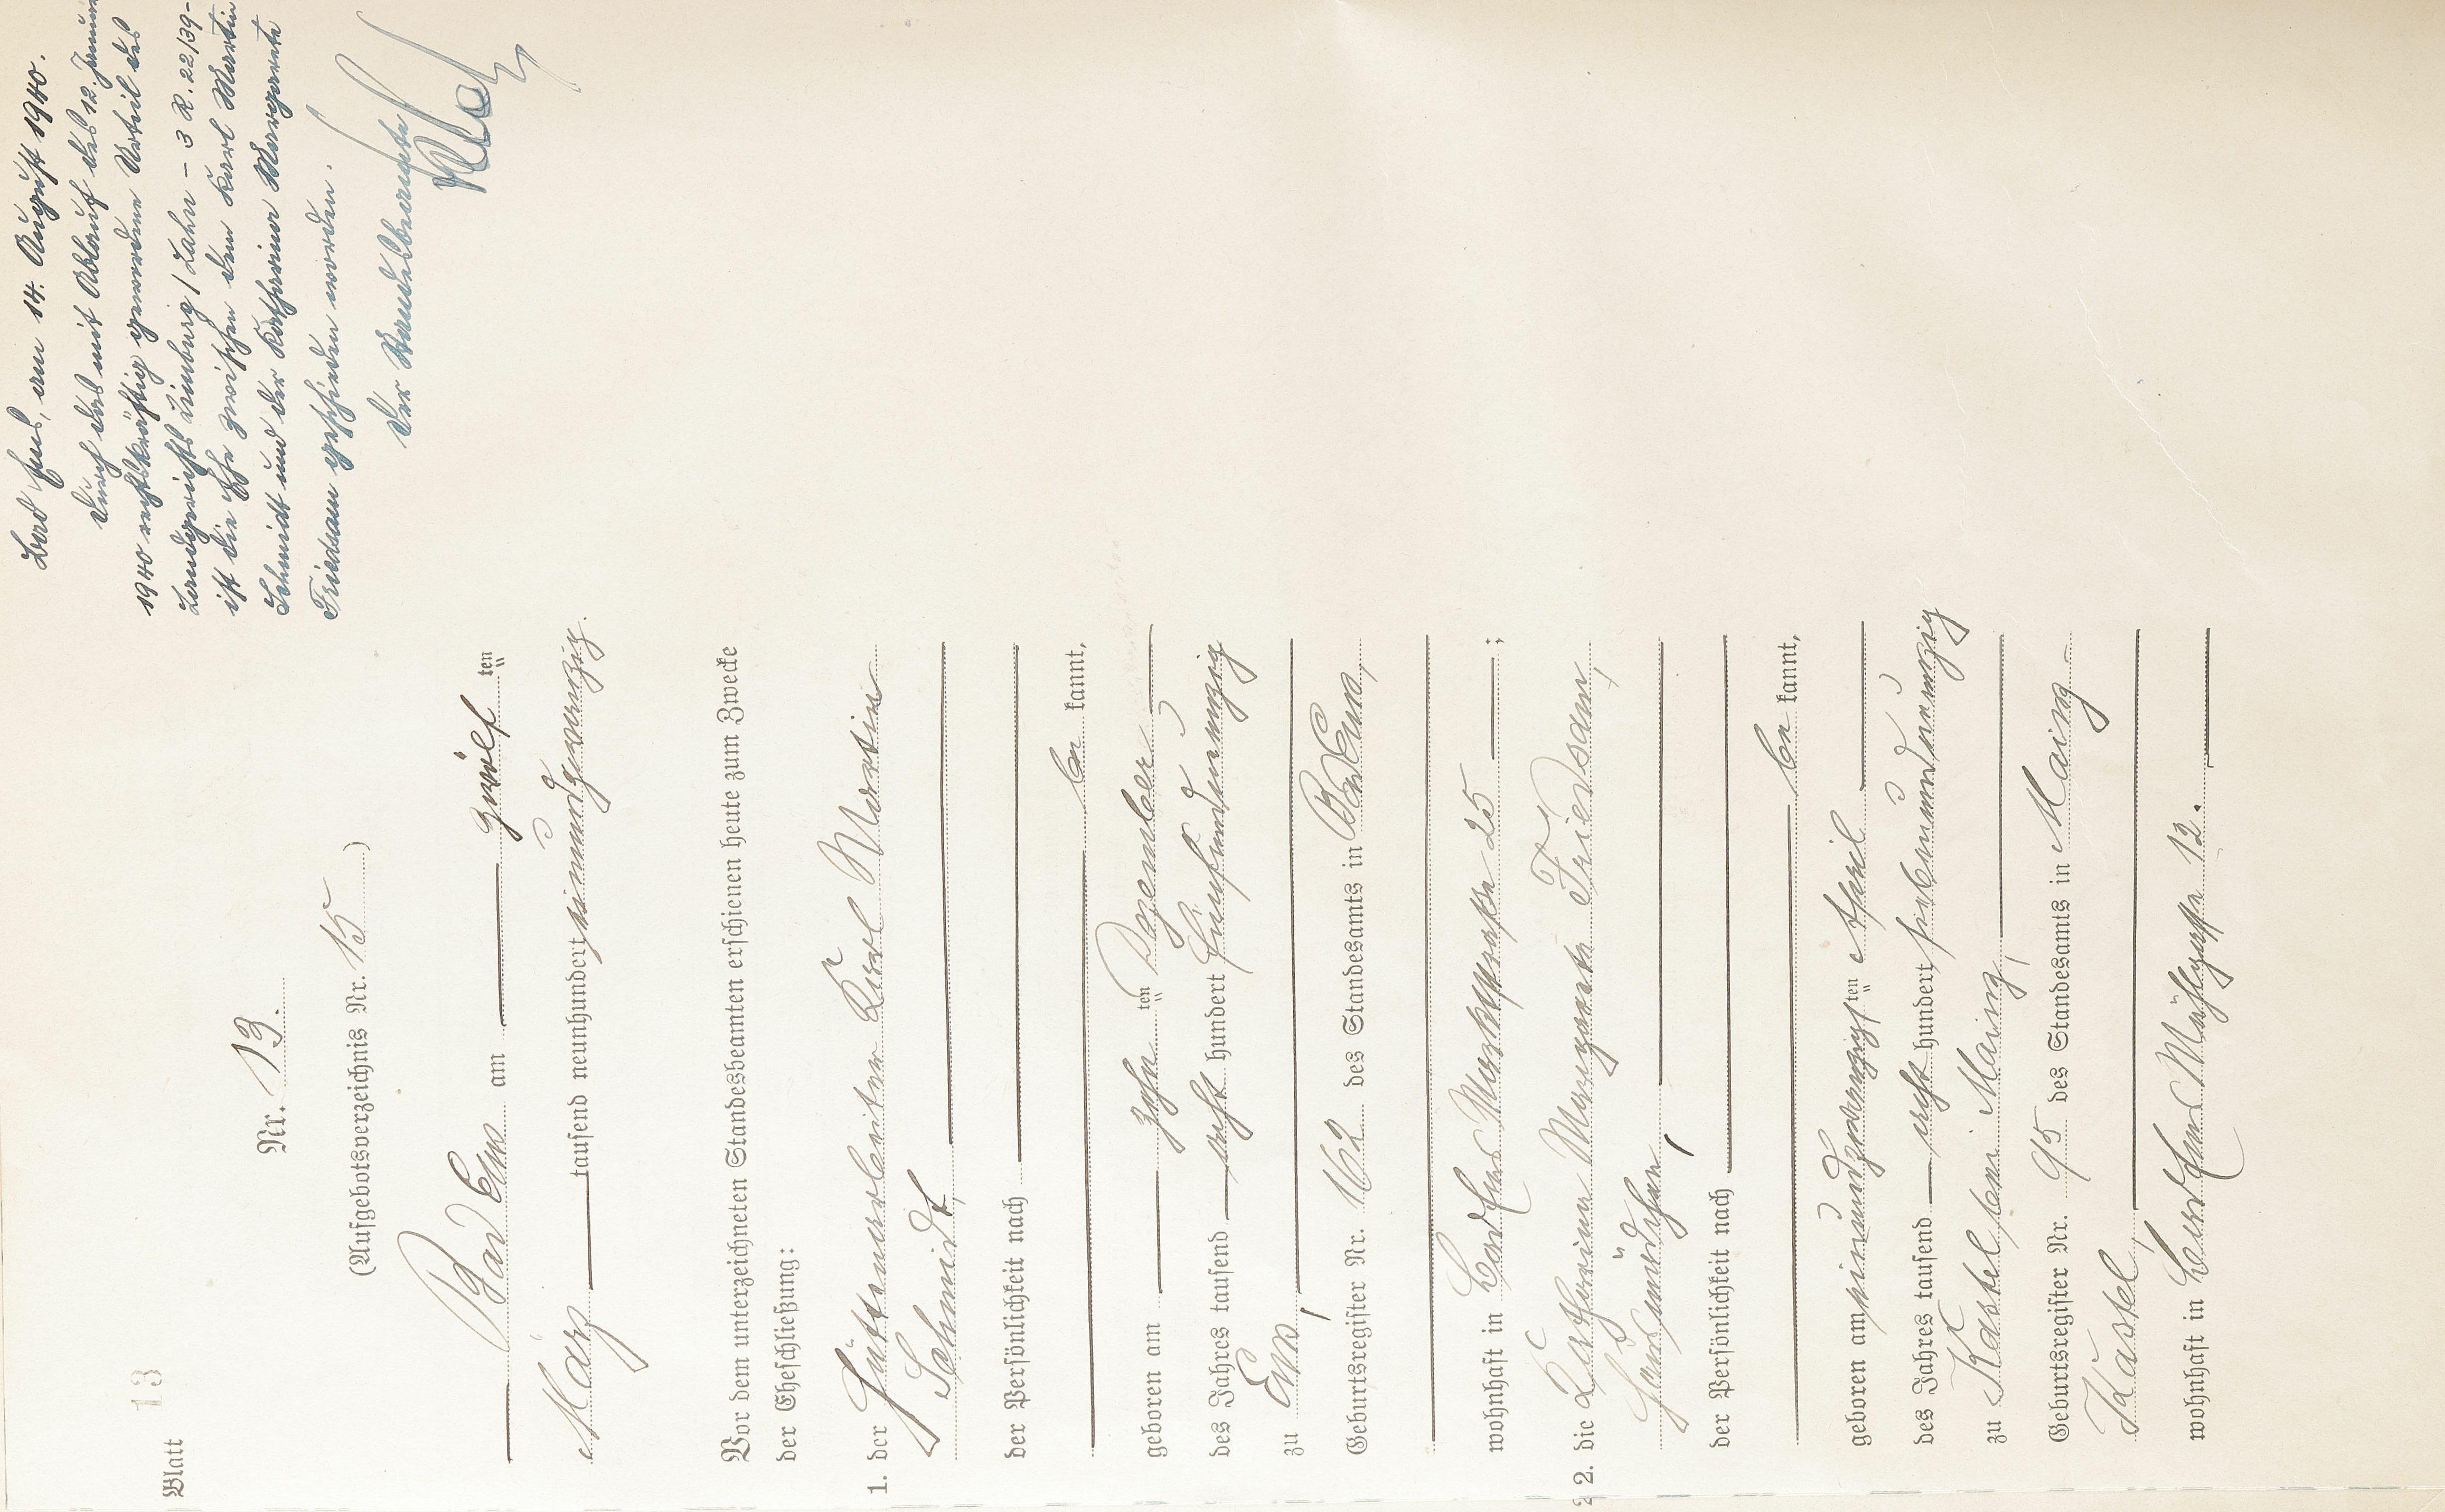 Blatt 13
Nr. 13.
(Aufgebotsverzeichnis Nr. 15)
Bad Ems am zwölf ten
März tausend neunhundert einundzwanzig.
Vor dem unterzeichneten Standesbeamten erschienen heute zum Zwecke
der Eheschließung:
1. der Hüttenarbeiter Karl Martin
Schmidt,
der Persönlichkeit nach
be kannt,
geboren am zehn ten Dezember
des Jahres tausend acht hundert fünfundneunzig
zu Ems,
Geburtsregister Nr. 162 des Standesamts in Bad Ems,
wohnhaft in Bad Ems Marktstraße 25 ;
2. die Katharina Margareta Friedsam,
der Persönlichkeit nach
be kannt,
geboren am einundzwanzigs ten April
des Jahres tausend acht hundert siebenundneunzig
zu Kastel bei Mainz,
Geburtsregister Nr. 95 des Standesamts in Mainz-
Kastel,
wohnhaft in Bad Ems Mühlgasse 12.
Bad Ems, am 14. August 1940.
Durch das mit Ablauf des 12. Januar
1940 rechtskräftig gewordene Urteil des
Landgerichts Limburg/Lahn - 3 R. 22/39 -
ist die Ehe zwischen dem Karl Martin
Schmidt und der Katharina Margareta
Friedsam geschieden worden.
Der Standesbeamte